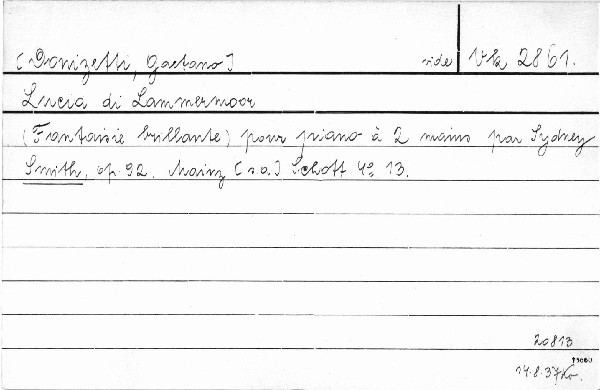 [Donizetti, Gaetano] vide Vk 2861.
Lucia di Lammermoor
(Fantaisie brillante) pour piano à 2 mains par Sydney
Smith, op. 92. Mainz [s.a.] Schott 4º 13.
20813
14.8.37